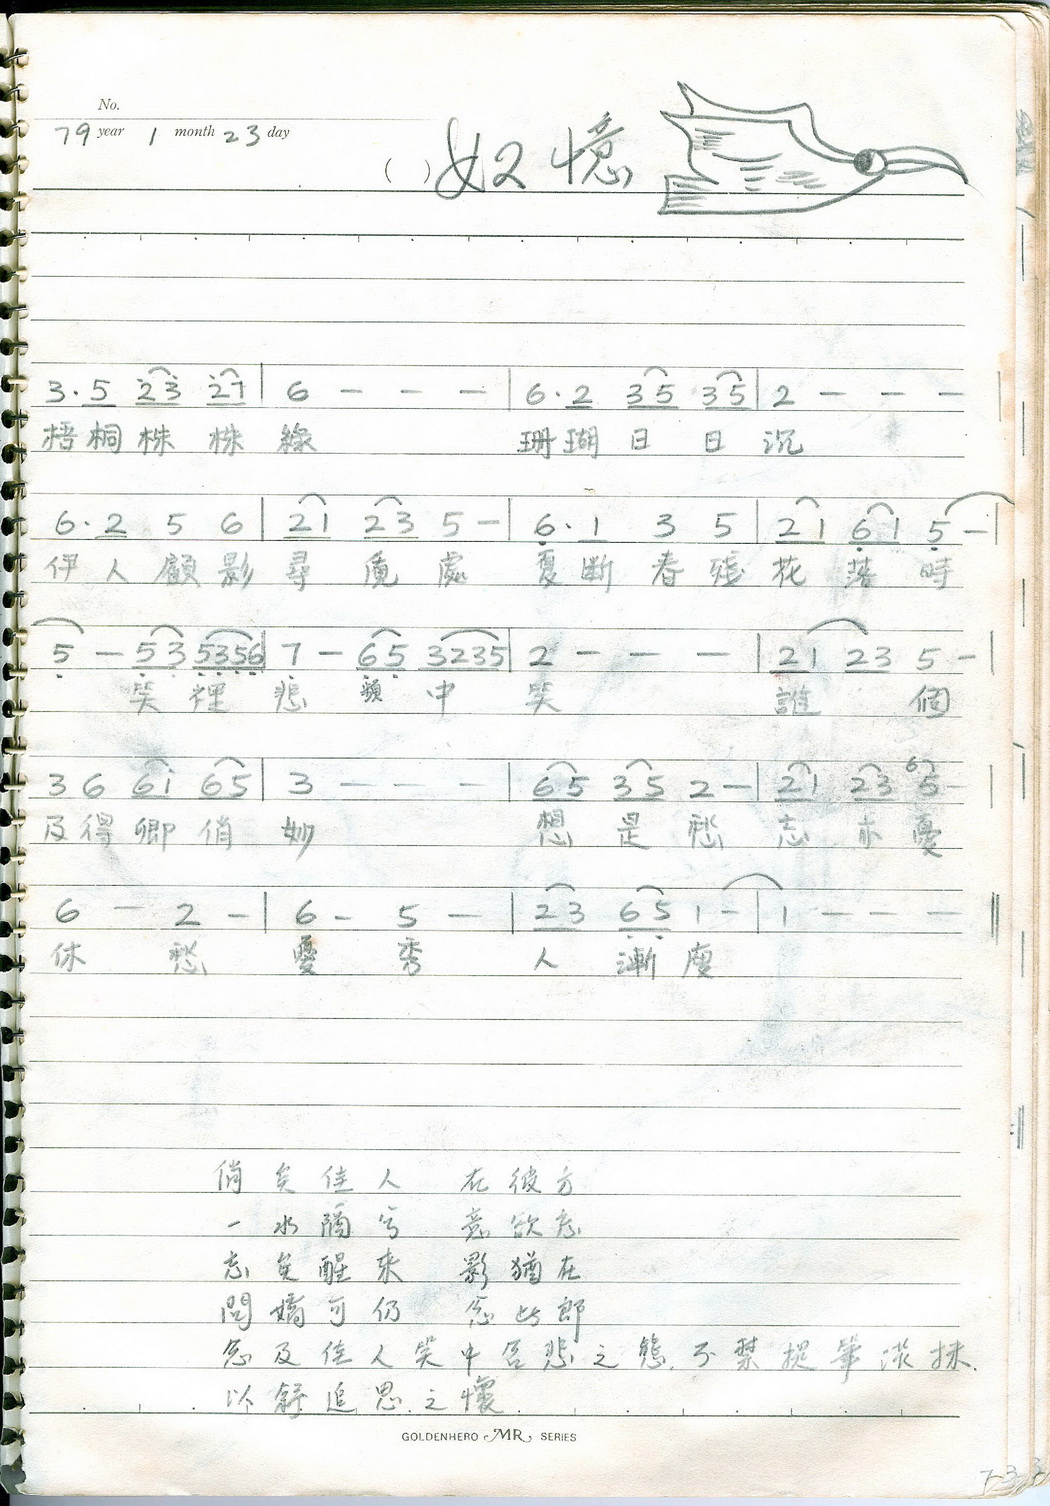 No.
79 year 1 month 23 day
( ) 如憶
3·5 23 27 | 6 - - - | 6·2 35 35 | 2 - - -
梧桐株株綠 珊瑚日日沉
6·2 5 6 | 21 23 5 - | 6·1 3 5 | 21 61 5 - |
伊人顧影尋覓處 夏斷春殘花落時
5 - 53 5356 | 7 - 65 3235 | 2 - - - | 21 23 5 - |
笑裡悲 顰中笑 誰個
3 6 61 65 | 3 - - - | 65 35 2 - | 21 23 67 5 - |
及得卿俏妙 想是愁 志亦憂
6 - 2 - | 6 - 5 - | 23 65 1 - | 1 - - - ‖
休愁憂秀人漸瘦
俏矣佳人 在彼方
一水隔兮 意欲忘
忘矣醒來 影猶在
問嬌可仍 念此郎
念及佳人笑中含悲之態.不禁提筆淡抹.
以舒追思之懷
GOLDENHERO MR SERIES